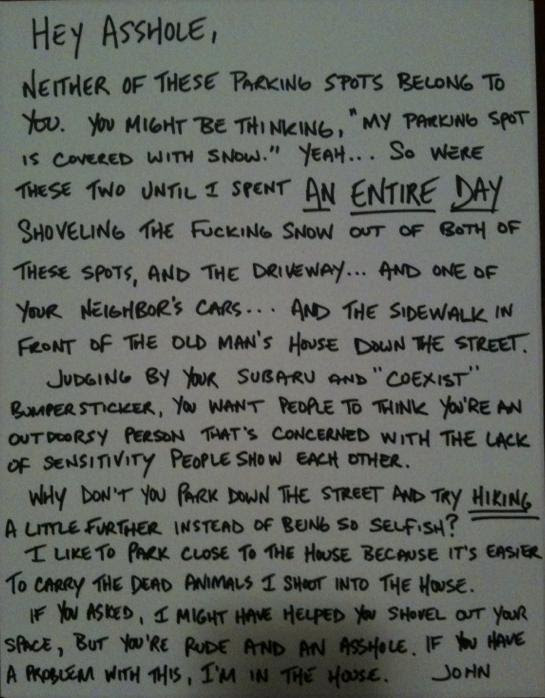 HEY ASSHOLE,
NEITHER OF THESE PARKING SPOTS BELONG TO
YOU. YOU MIGHT BE THINKING, "MY PARKING SPOT
IS COVERED WITH SNOW." YEAH... SO WERE
THESE TWO UNTIL I SPENT AN ENTIRE DAY
SHOVELING THE FUCKING SNOW OUT OF BOTH OF
THESE SPOTS, AND THE DRIVEWAY... AND ONE OF
YOUR NEIGHBOR'S CARS... AND THE SIDEWALK IN
FRONT OF THE OLD MAN'S HOUSE DOWN THE STREET.
JUDGING BY YOUR SUBARU AND "COEXIST"
BUMPER STICKER, YOU WANT PEOPLE TO THINK YOU'RE AN
OUTDOORSY PERSON THAT'S CONCERNED WITH THE LACK
OF SENSITIVITY PEOPLE SHOW EACH OTHER.
WHY DON'T YOU PARK DOWN THE STREET AND TRY HIKING
A LITTLE FURTHER INSTEAD OF BEING SO SELFISH?
I LIKE TO PARK CLOSE TO THE HOUSE BECAUSE IT'S EASIER
TO CARRY THE DEAD ANIMALS I SHOOT INTO THE HOUSE.
IF YOU ASKED, I MIGHT HAVE HELPED YOU SHOVEL OUT YOUR
SPACE, BUT YOU'RE RUDE AND AN ASSHOLE. IF YOU HAVE
A PROBLEM WITH THIS, I'M IN THE HOUSE. JOHN